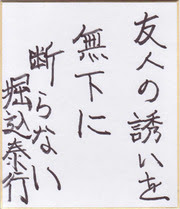 友人の誘いを
無下に
断らない
堀込泰行